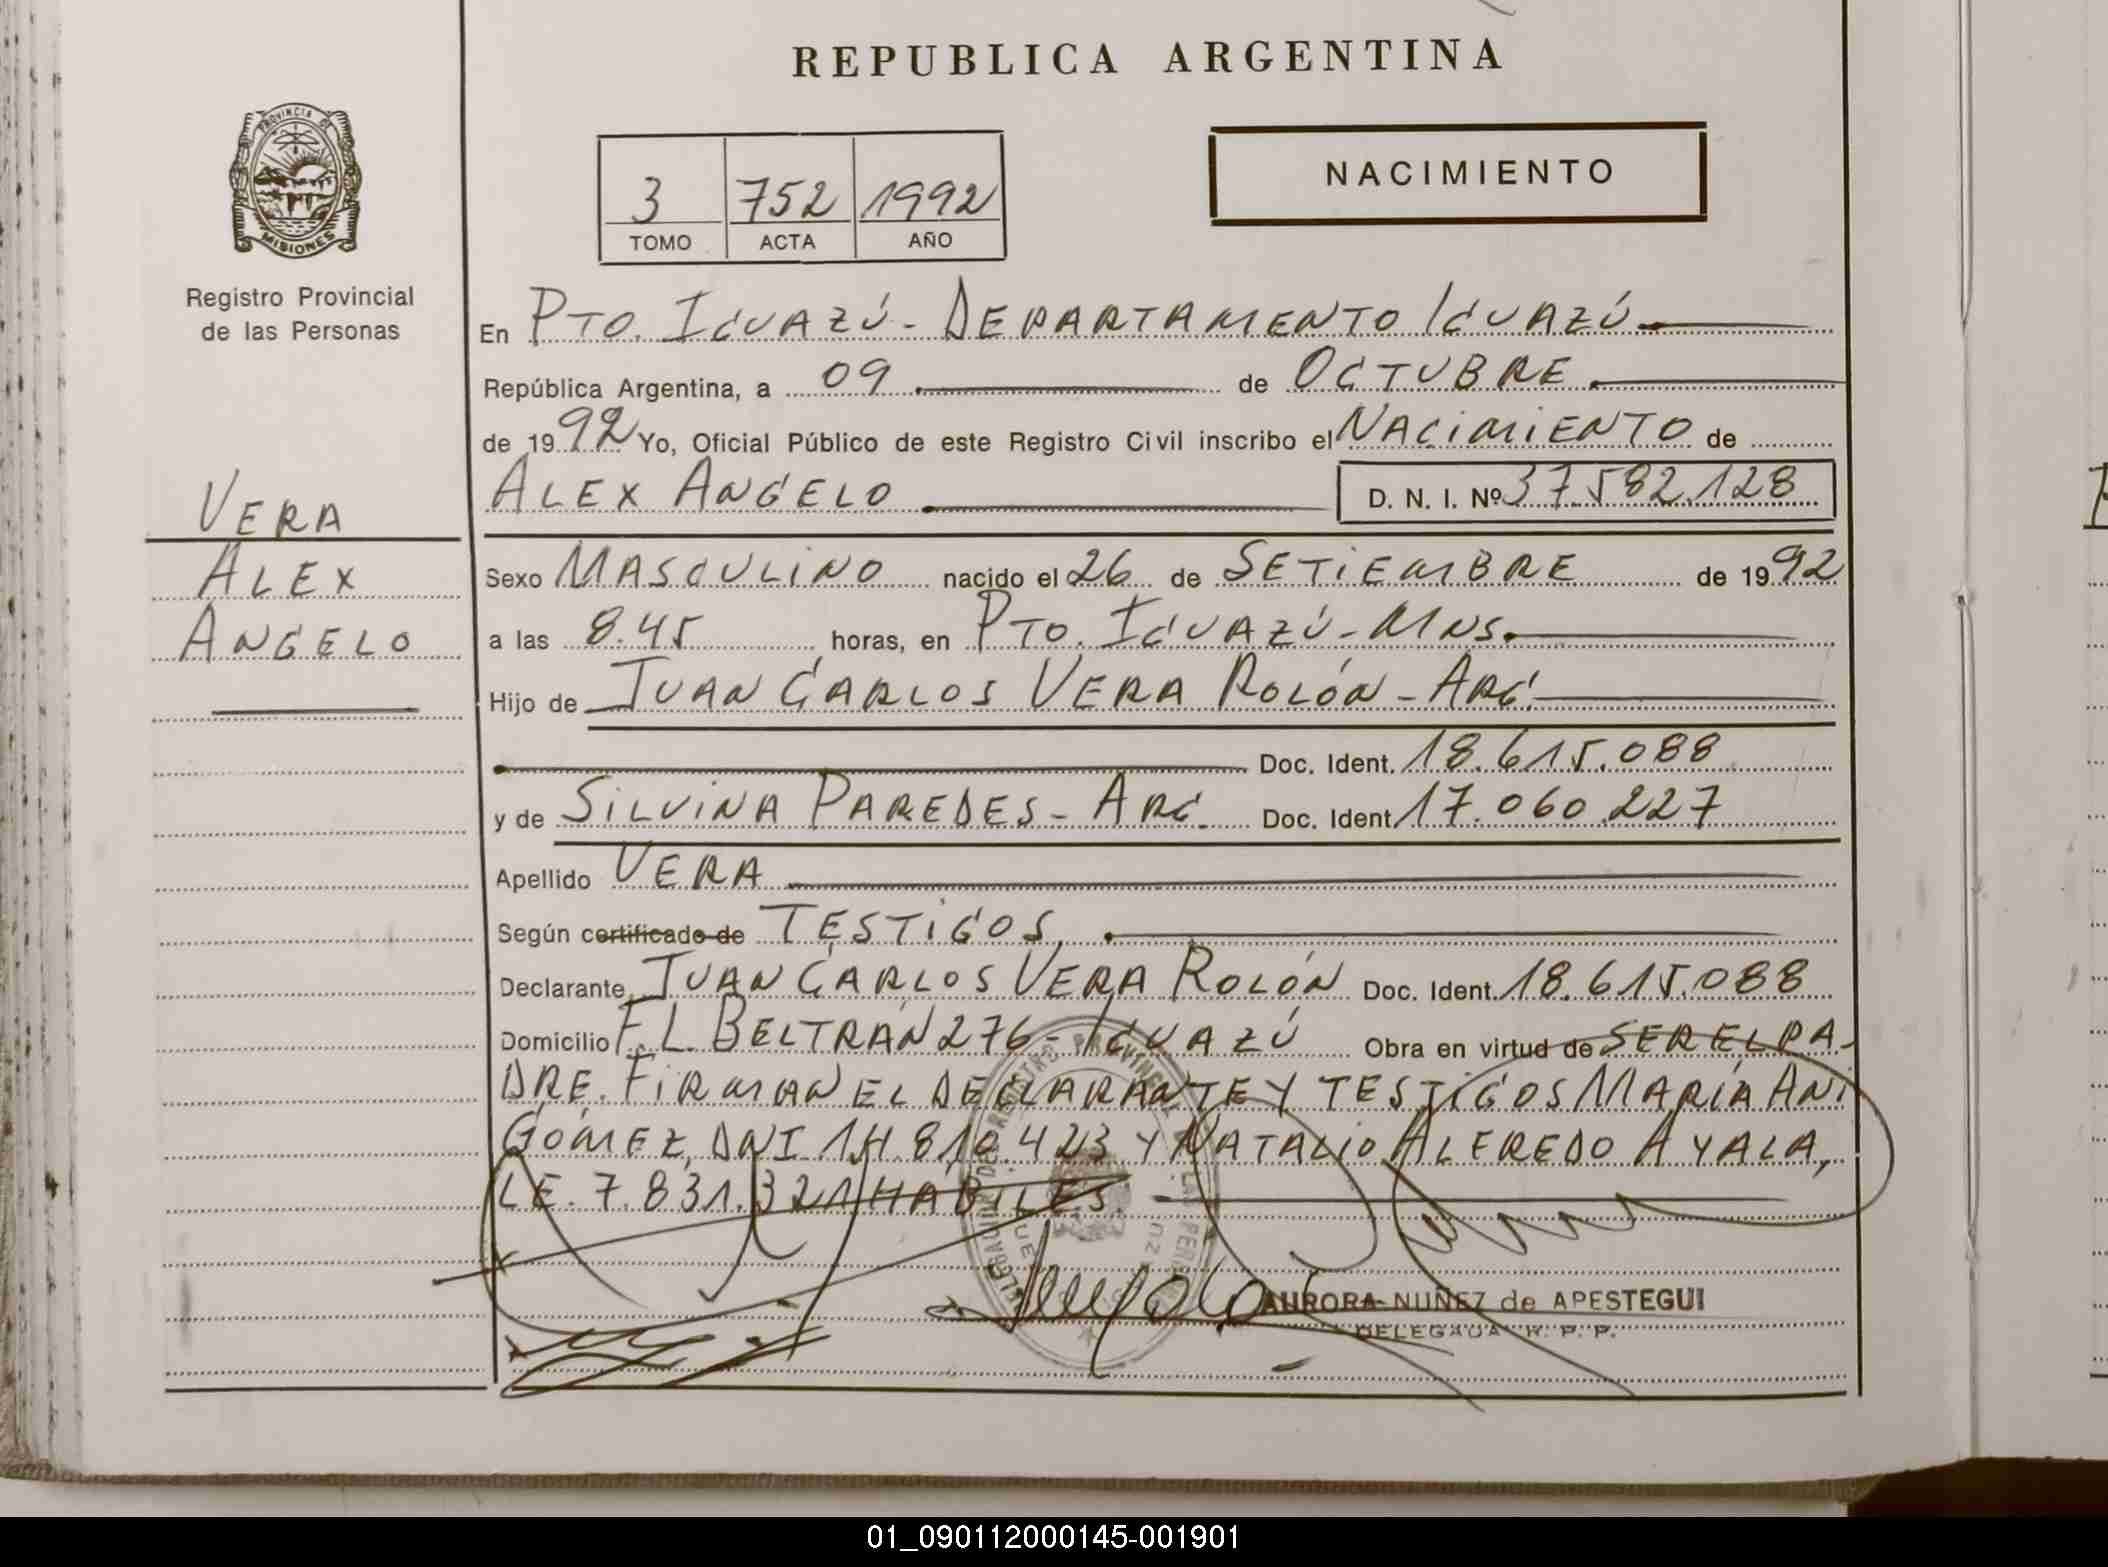 REPUBLICA ARGENTINA
PROVINCIA DE
MISIONES
Registro Provincial
de las Personas
3 752 1992
TOMO ACTA AÑO
NACIMIENTO
En PTO. IGUAZÚ - DEPARTAMENTO IGUAZÚ
República Argentina, a 09 de OCTUBRE
de 1992 Yo, Oficial Público de este Registro Civil inscribo el NACIMIENTO de
ALEX ANGELO D. N. I. Nº 37.582.128
VERA
ALEX
ANGELO
Sexo MASCULINO nacido el 26 de SETIEMBRE de 1992
a las 8.45 horas, en PTO. IGUAZÚ - MNS.
Hijo de JUAN CARLOS VERA ROLÓN - ARG.
Doc. Ident. 18.615.088
y de SILVINA PAREDES - ARG. Doc. Ident. 17.060.227
Apellido VERA
Según certificado de TESTIGOS
Declarante JUAN CARLOS VERA ROLÓN Doc. Ident. 18.615.088
Domicilio F. L. BELTRÁN 276 - IGUAZÚ Obra en virtud de SER EL PA-
DRE. FIRMAN EL DECLARANTE Y TESTIGOS MARÍA
GÓMEZ, DNI 14.810.423 Y NATALIO ALFREDO AYALA,
LE. 7.831.321 HABILES.
AURORA NUÑEZ de APESTEGUI
DELEGADA R. P. P.
01_090112000145-001901